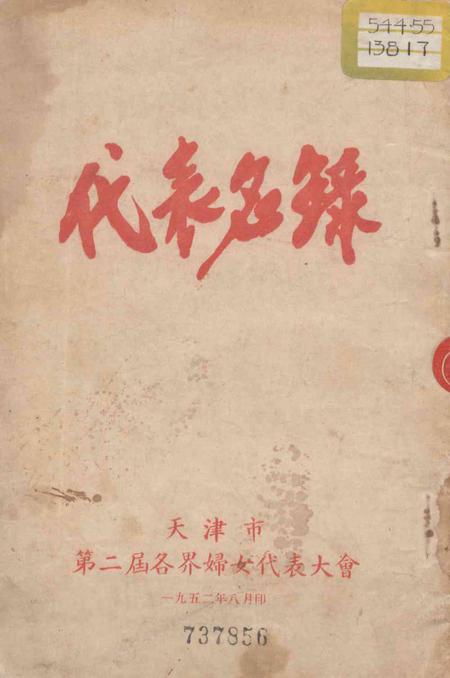 544.55
13817
代表名録
天津市
第二屆各界婦女代表大會
一九五二年八月印
737856